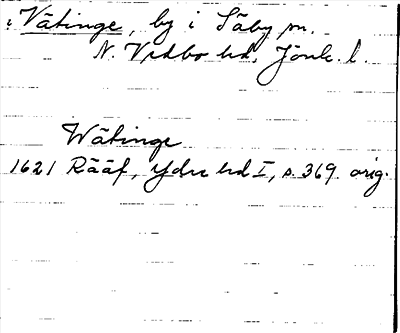 Vätinge, by i Säby sn.
N. Vedbo hd, Jönk. l.
Wätinge
1621 Rääf, Ydre hd I, s. 369 orig.